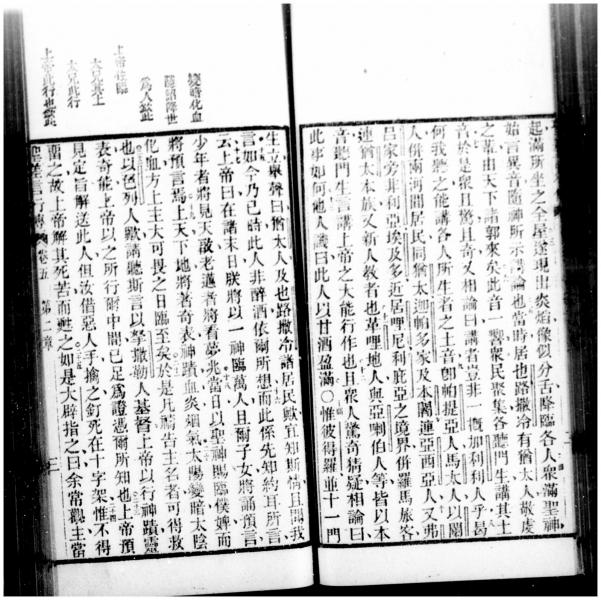 起滿所坐之全屋遂現出炎焰像似分舌降臨各人衆滿聖神
始言異音隨神所示講論也當時居也路撒冷有猶太人敬虔
之輩由天下諸郭來矣此音一響衆民聚集各聽門生講其土
音於是衆且驚且奇又相論曰講者豈非一概加利利人乎曷
何我聽之能講各人所生者之土音卽帕提亞人馬太人以闌
人併兩河間居民同猶太迦帕多家及本連亞西亞人又弗
呂家旁非利亞埃及多近居哩尼利庇亞之境界併羅馬旅客
連猶太本族又新入教者也革哩地人與亞喇伯人等皆以本
音聽門生言講上帝之大能行作也且衆人驚奇猜疑相論曰
此事如何他人譏曰此人以甘酒盈滿〇惟彼得羅並十一門
上帝
太兄
太兄此行
上帝此行也
生立衆聲曰猶太人及也路撒冷諸居民歟宜知斯情且聞我
言如今乃已時此人非醉酒依爾所想而此係先知約耳所言
云上帝曰在諸末日朕將以一神臨萬人且爾子女將誦預言
少年者將見天啟老邁者將看夢兆當日以聖神賜臨僕婢而
將預言焉上天下地將著奇表神蹟血炎烟氣太陽變暗太陰
化血方上主大可畏之日臨至矣於是凡禱告主名者可得救
也以色列人歟請聽斯言以拿撒勒人基督上帝以行神蹟靈
表奇能上帝以之所行爾中間已足爲證憑爾所知也上帝預
見定旨解送此人但汝借惡人手擒之釘死在十字架惟不得
留之故上帝解其死苦而甦之如是大辟指之曰余常觀主當
聖差言行傳 卷五 第二章